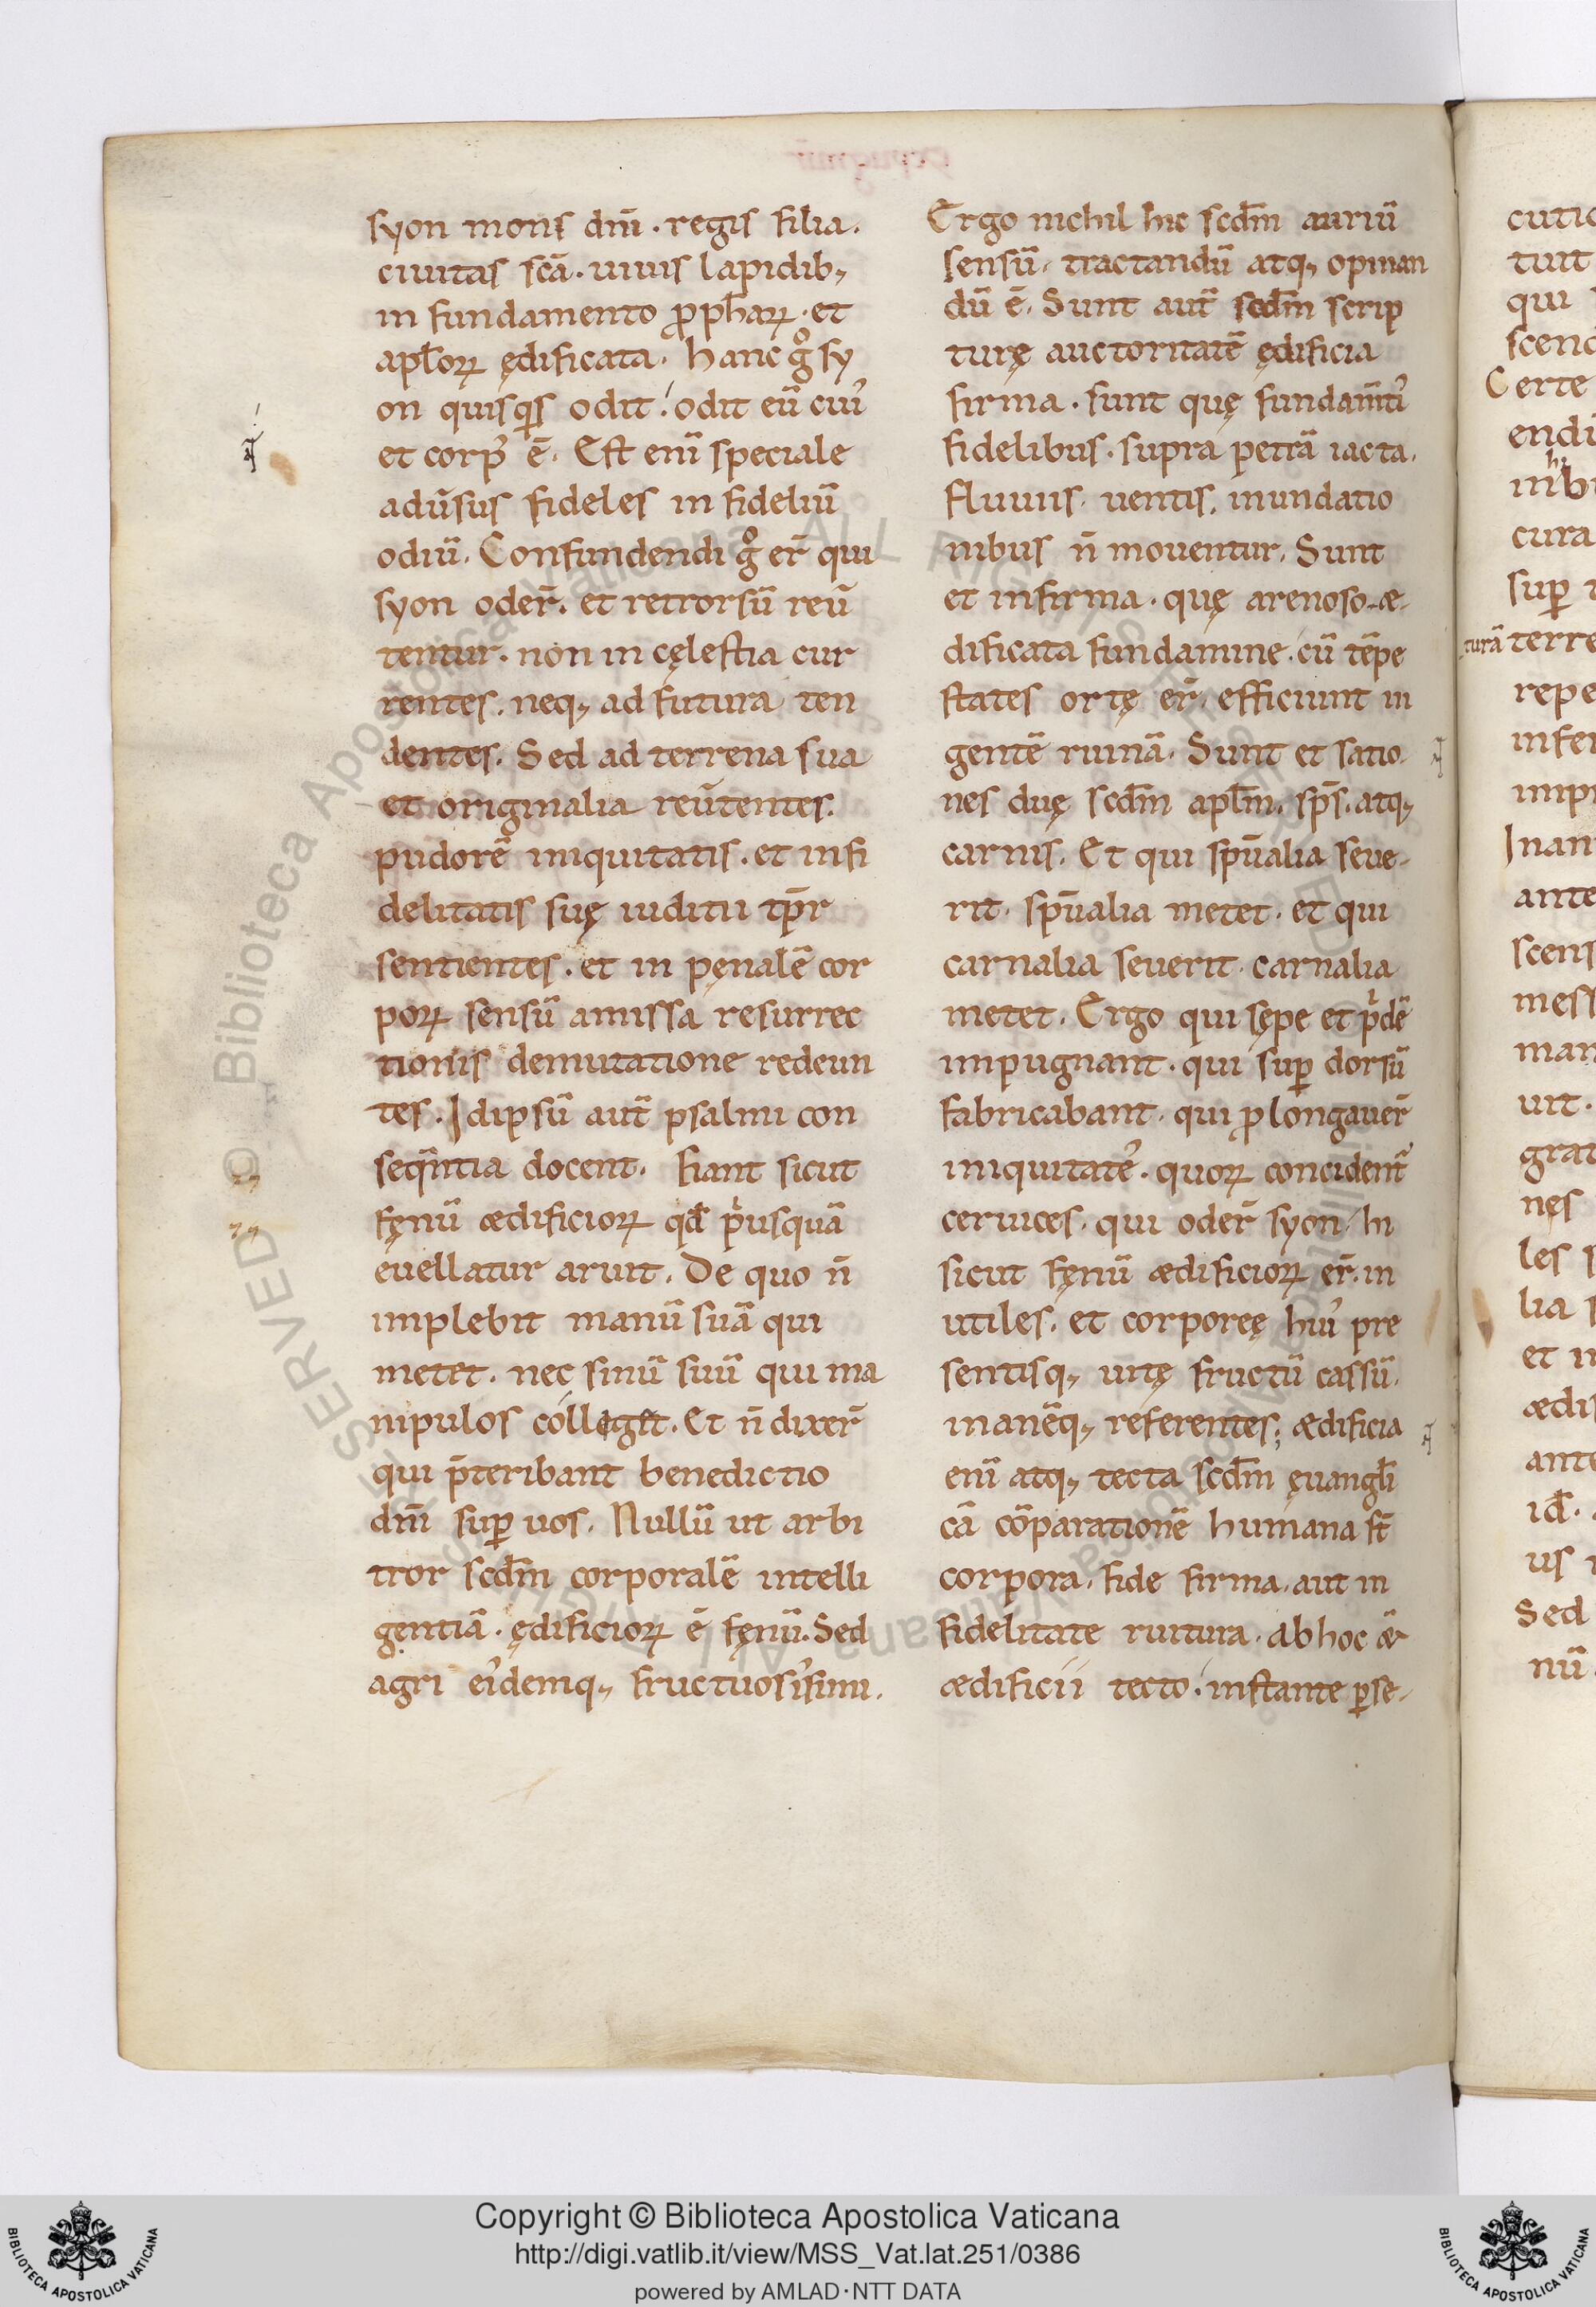 syon mons dñi · regis filia.
ciuitas scã · uiuis lapidib;
in fundamento ꝓph̃aꝝ · et
apl̃oꝝ ędificata. hanc gͦ sy
on quisqͥs odit. odit eũ cuiꝰ
et corpꝰ ẽ. Est enĩ speciale
adũsus fideles in fideliũ
odiũ. Confundendi gͦ er̃ qui
syon oder̃. et retrorsũ reũ
tentur. non in cęlestia cur
rentes. neq; ad futura ten
dentes. Sed ad terrena sua
et originalia reũtentes.
pudorẽ iniquitatis. et infi
delitatis suę iuditii tp̃r
sentientes. et in pęnalẽ cor
poꝝ sensũ amissa resurrec
tionis demutatione redeun
tes. Idipsũ aut̃ psalmi con
seqñtia docent. Fiant sicut
fęnũ ædificioꝝ qd̃ pͥusquã
euellatur aruit. De quo ñ
implebit manũ suã qui
metet. nec sinũ suũ qui ma
nipulos colleget. Et ñ dixer̃
qui p̃teribant benedictio
dñi suꝑ uos. Nullũ ut arbi
tror scdm̃ corporalẽ intelli
gentiã. ędificioꝝ ẽ fęnũ. Sed
agri eiꝰdemq; fructuosissimi.
Ergo nichil hic scdm̃ auriũ
sensũ. tractandũ atq; opinan
dũ ẽ. Sunt aut̃ scdm̃ scrip
turę auctoritatẽ ędificia
firma. sunt quę fundam̃tis
fidelibus. supra petrã iacta.
fluuiis. uentis. inundatio
nibus ñ mouentur. Sunt
et infirma. quę arenoso æ-
dificata fundamine. cũ tẽpe
states ortę er̃. efficiunt in
gentẽ ruinã. Sunt et satio
nes duę scdm̃ apl̃m. sp̃s. atq;
carnis. Et qui sp̃ualia seue-
rit. sp̃ualia metet. et qui
carnalia seuerit. carnalia
metet. Ergo qui sępe et pͥdẽ
impugnant. qui suꝑ dorsũ
fabricabant. qui ꝓlongauer̃
iniquitatẽ. quoꝝ concident̃
ceruices. qui oder̃ syon. hi
sicut fęnũ ædificioꝝ er̃. in
utiles. et corporeę huiꝰ pre
sentisq; uitę fructũ cassũ.
inanẽq; referentes; ædificia
enĩ atq; tecta scdm̃ ęuangl̃i
cã cõparationẽ humana st̃
corpora. fide firma. aut in
fidelitate ruitura. Ab hoc
ædificii tecto. instante ꝑse-
cutio
tuit
qui
scend
Certe
endi
cura
suꝑ
turã terre
repe
infer
imp
Inan
ante
scens
mess
man
uit.
grat
nes
les s
lia s
et i
ædi
ante
id̃.
us
Sed
nũ
Copyright © Biblioteca Apostolica Vaticana
http://digi.vatlib.it/view/MSS_Vat.lat.251/0386
powered by AMLAD·NTT DATA
BIBLIOTECA APOSTOLICA VATICANA
BIBLIOTECA APOSTOLICA VATICANA